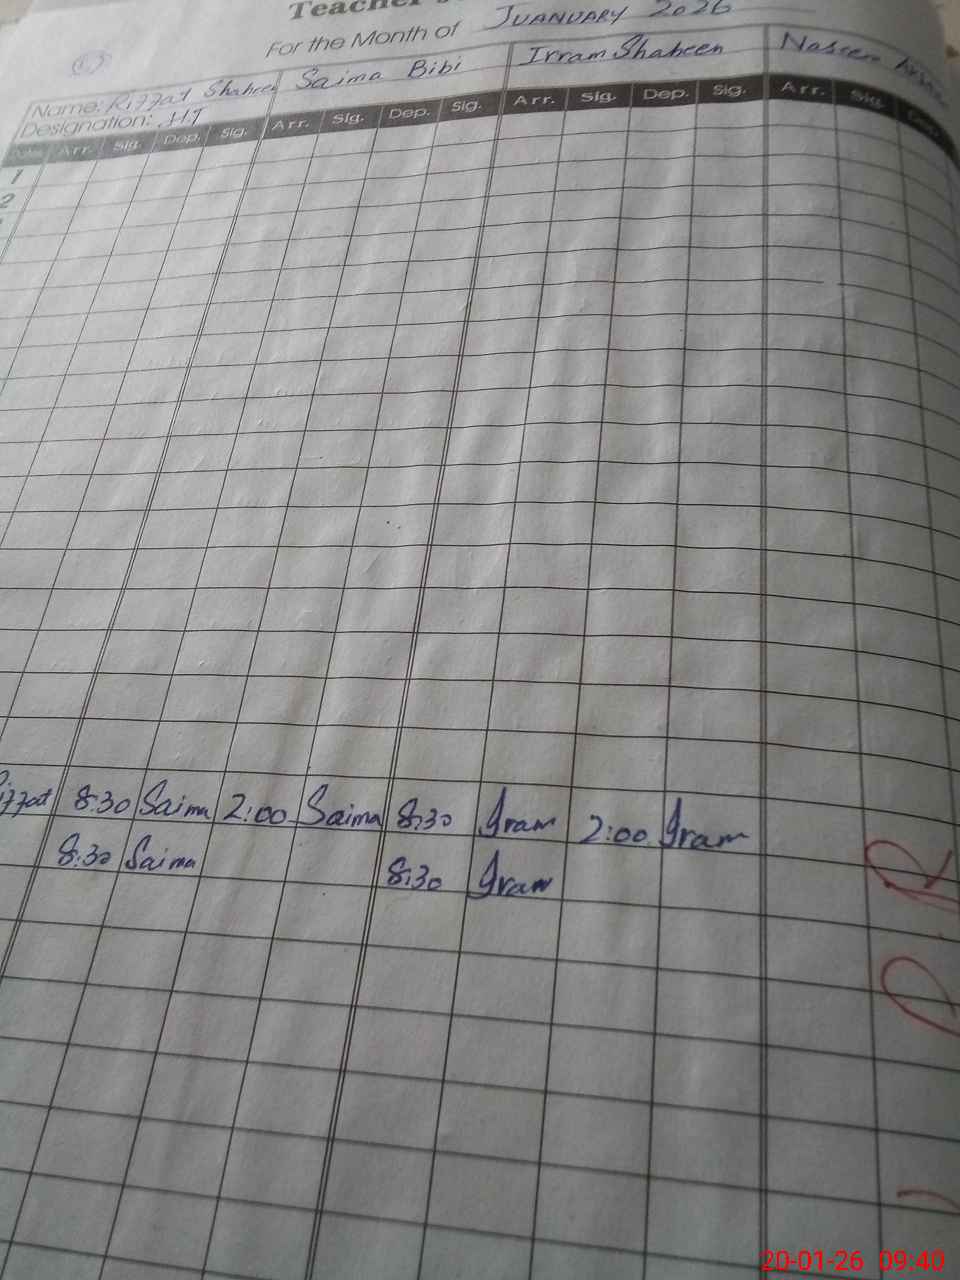 Teacher
For the Month of JUANUARY 2026
Name: Riffat Shaheen Saima Bibi Irram Shaheen Naseem
Designation: HT
Dates Arr. Sig. Dep. Sig. Arr. Sig. Dep. Sig. Arr. Sig. Dep. Sig. Arr. Sig. Dep.
1
2
8:30 Saima 2:00 Saima 8:30 Iram 2:00 Iram
8:30 Saima 8:30 Iram
20-01-26 09:40